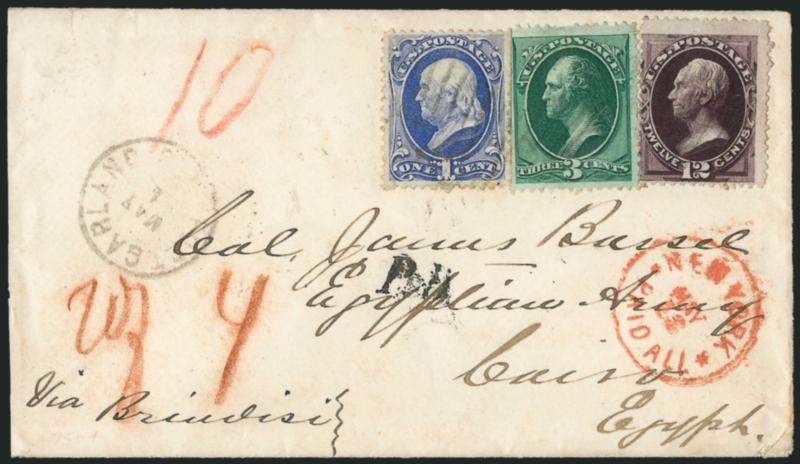 10
U.S. POSTAGE
ONE 1 CENT
U.S. POSTAGE
THREE 3 CENTS
U.S. POSTAGE
TWELVE 12 CENTS
GARLAND
MAY
Col. James Bassel
Egyptian Army
Cairo
Egypt.
NEW YORK
MAY
PAID ALL
4
Via Brindisi